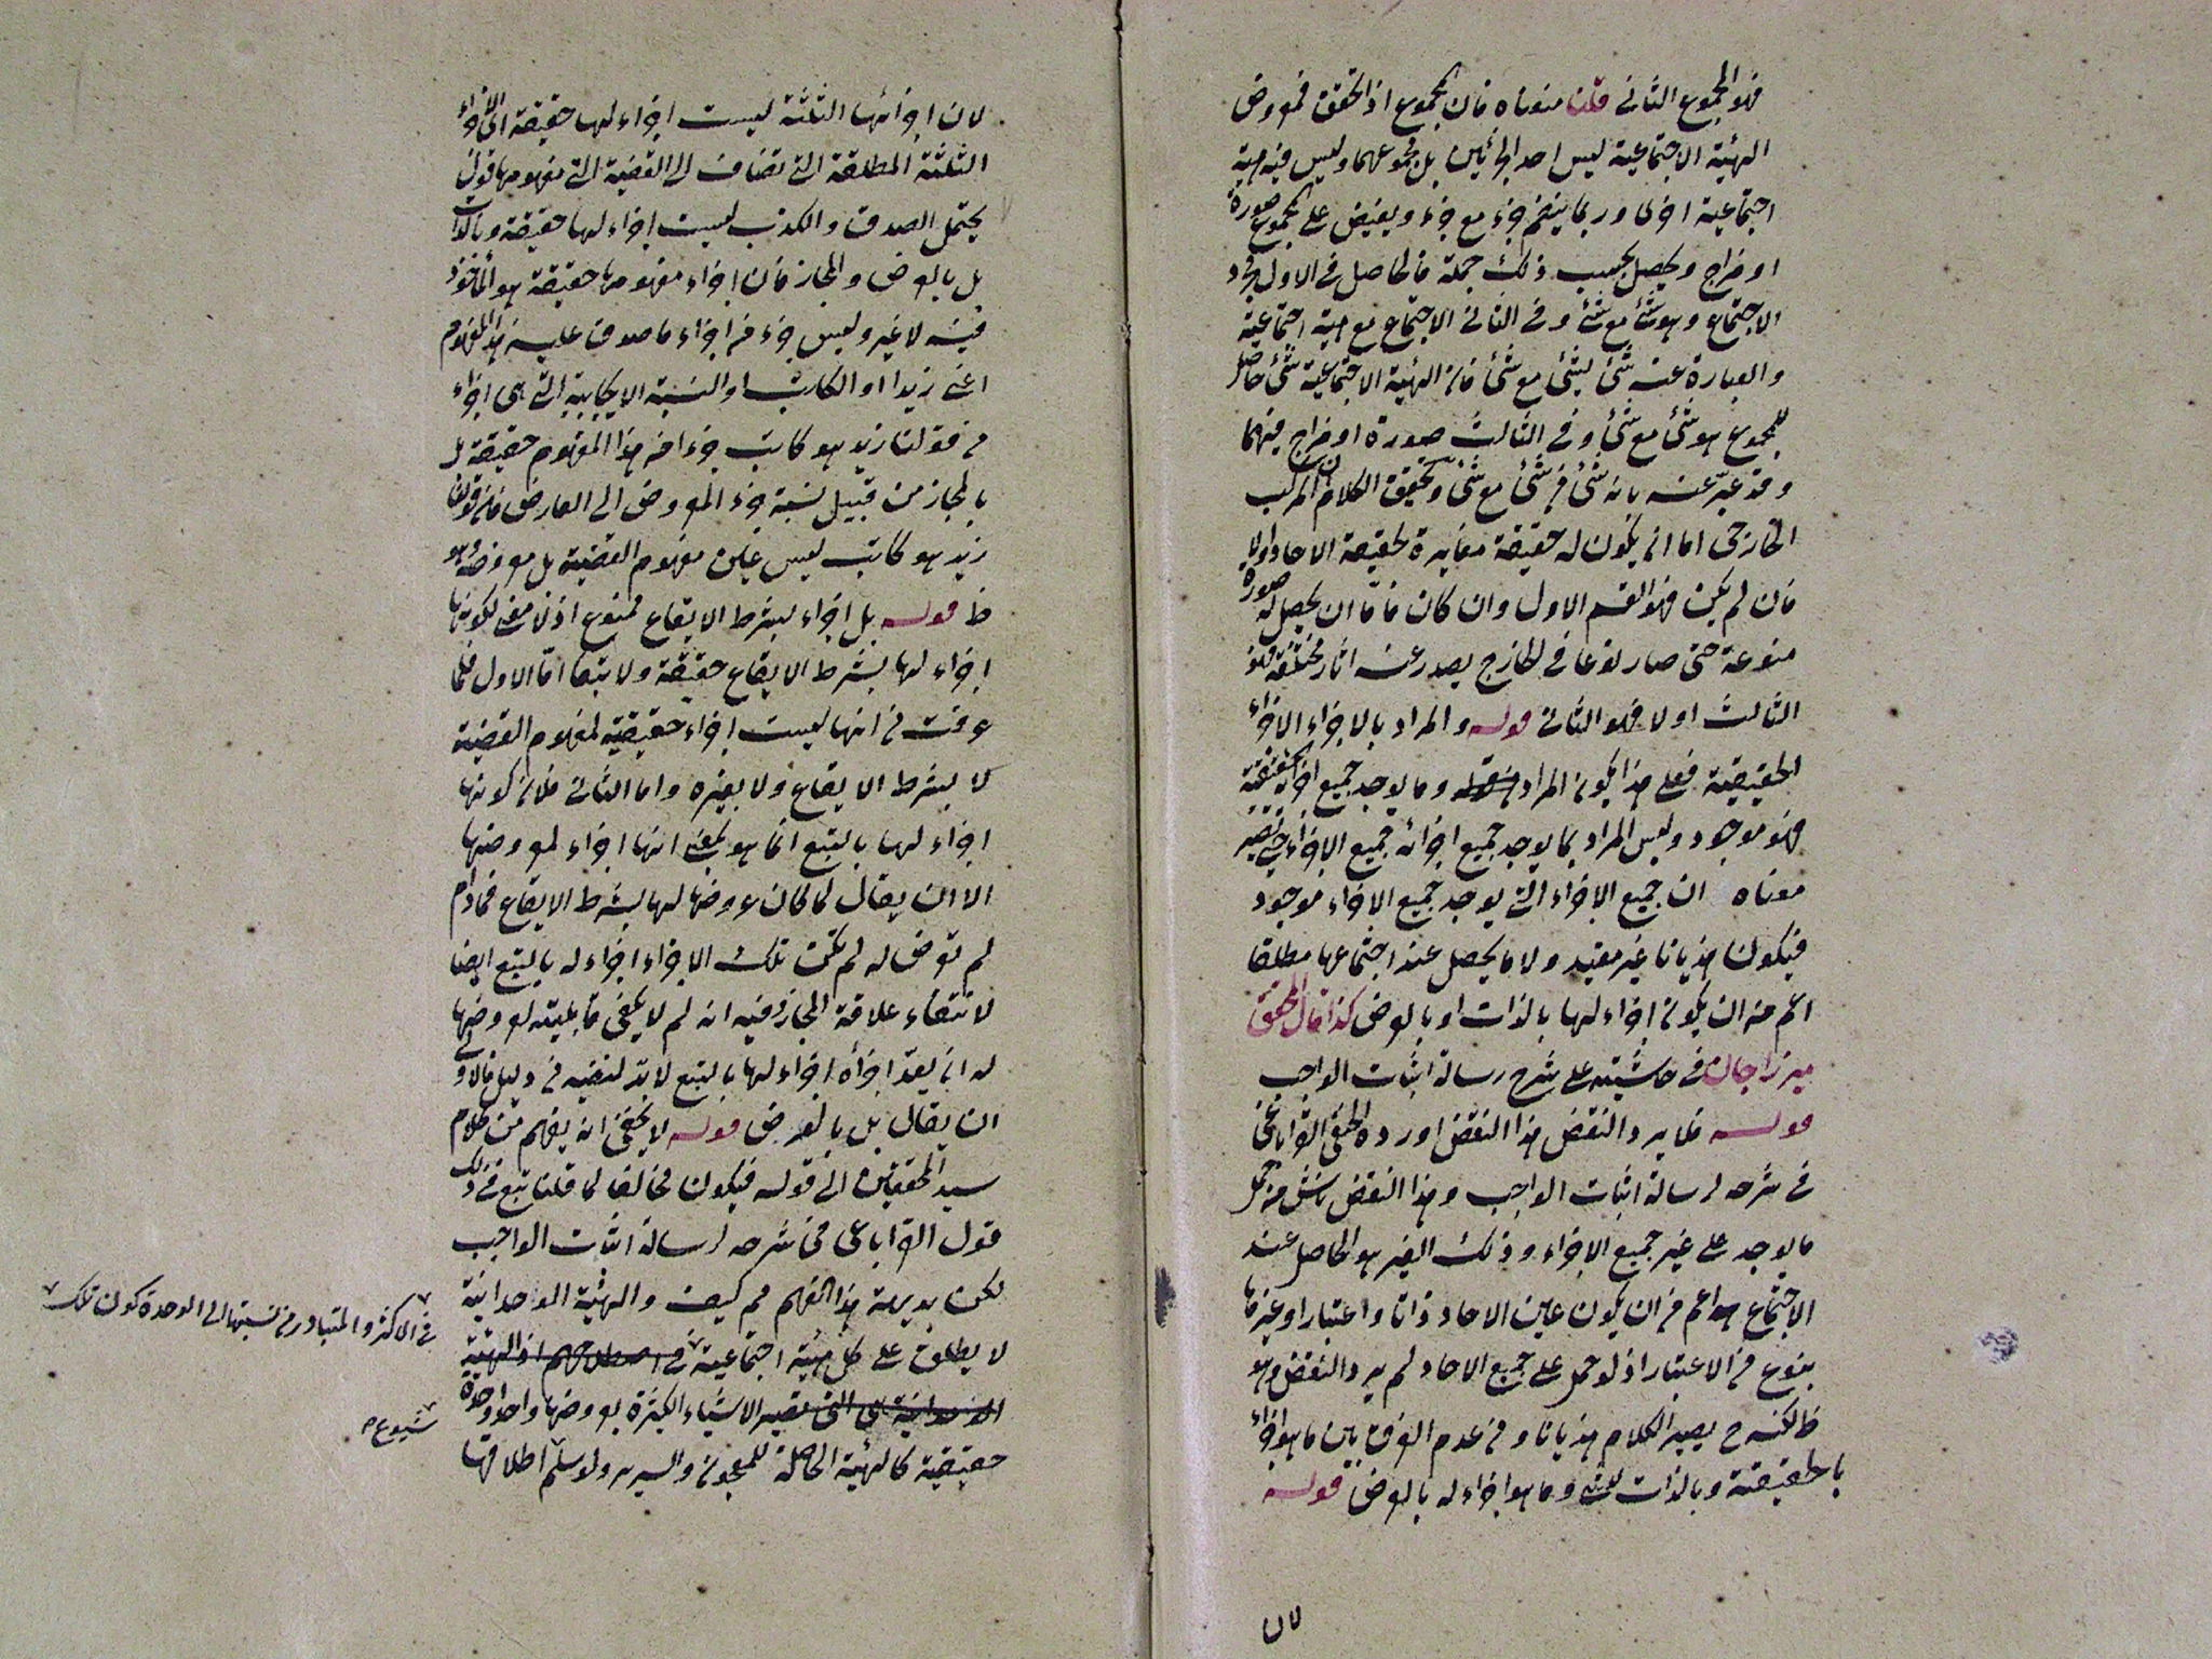 فهو المجموع الثاني قلنا منوناه فان المجموع اذ التحقق فمعروض
الهيئة الاجتماعية ليس احد الجزئين بل مجموعهما وليس فيه هيئة
اجتماعية اخرى وربما ينضم جزء مع جزء ويفيض على المجموع صورة
او مزاج ويحصل بحسب ذلك جملة فالحاصل في الاول مجرد
الاجتماع وهو شئ مع شئ وفي الثاني الاجتماع مع هيئة اجتماعية
والعبارة عنه شئ لشئ مع شئ فان الهيئة الاجتماعية شئ حاصل
للمجموع هو شئ مع شئ وفي الثالث صورة او مزاج فيهما
وقد عبّر عنه بانه شئ في شئ مع شئ وتحقيق الكلام ان المركب
الخارجى اما ان يكون له حقيقة مغايرة لحقيقة الاحاد او لا
فان لم يكن فهو القسم الاول وان كان فامّا ان يحصل له صورة
منوعة حتى صار نوعا في الخارج يصدر عنه اثار مختلفة فهو
الثالث او لا فهو الثاني قوله والمراد بالاجزاء الاجزاء
الحقيقية فعلى هذا يكون المراد بقوله وما يوجد جميع اجزائه الحقيقية
فهو موجود وليس المراد بما يوجد جميع اجزائه جميع الاجزاء حتى يصير
معناه ان جميع الاجزاء التي يوجد جميع الاجزاء موجود
فيكون هذيانا غير مفيد ولا ما يحصل عند اجتماعها مطلقا
اعم من ان يكون اجزاء لها بالذات او بالعرض كذا قال المحقق
ميرزاجان في حاشيته على شرح رسالة اثبات الواجب
قوله فلا يرد النقض هذا النقض اورده الحنفى القراباغى
في شرحه لرسالة اثبات الواجب وهذا النقض ناش من حمل
ما يوجد على غير جميع الاجزاء وذلك الغير هو الحاصل عند
الاجتماع اعم من ان يكون عين الاحاد ذاتا واعتبارا او غيرها
بنوع من الاعتبار اذ لو حمل على جميع الاحاد لم يرد النقض وهو
ظ لكنه ح يصير الكلام هذيانا ومن عدم الفرق بين ما هو اجزاء
بالحقيقة وبالذات لشئ وما هو اجزاء له بالعرض قوله
لان
لان اجزائها الثلثة ليست اجزاء لها حقيقة اى الاجزاء
الثلثة المطلقة التي تضاف الى القضية التي مفهومها قول
يحتمل الصدق والكذب ليست اجزاء لها حقيقة وبالذات
بل بالعرض والمجاز فان اجزاء مفهومها حقيقة هو المأخوذ
فيه لا غير وليس جزء من اجزاء ما صدق عليه هذا المفهوم
اعنى زيدا او الكاتب او النسبة الايجابية التي هى اجزاء
من قولنا زيد هو كاتب جزءا من هذا المفهوم حقيقة بل
بالمجاز من قبيل نسبة جزء المعروض الى العارض فان قولنا
زيد هو كاتب ليس عين مفهوم القضية بل معروضه وهو
ظ قوله بل اجزاء بشرط الايقاع ممنوع اذ لا معنى لكونها
اجزاء لها بشرط الايقاع حقيقة ولا تبعا امّا الاول فلما
عرفت من انها ليست اجزاء حقيقية لمفهوم القضية
لا بشرط الايقاع ولا بغيره واما الثاني فلان كونها
اجزاء لها بالتبع انما هو بمعنى انها اجزاء لمعروضها
الا ان يقال لما كان عروضها لها بشرط الايقاع فما دام
لم تعرض له لم تكن تلك الاجزاء اجزاء له بالتبع ايضا
لانتفاء علاقة المجاز وفيه انه لم لا يكفى قابليته لعروضها
له ان يعدّ اجزأه اجزاء لها بالتبع لا بدّ لنفيه من دليل فالاولى
ان يقال بل بالعرض قوله لا يخفى انه يفهم من كلام
سيد المحققين الى قوله فيكون مخالفا لما قلنا تبع في ذلك
قول القراباغى في شرحه لرسالة اثبات الواجب
لكن بديهة هذا الفهم مم كيف والهيئة الوحدانية
لا يطلق على كل هيئة اجتماعية في اصطلاحهم اذ الهيئة
الوحدانية هى التي تصير الاشياء الكثيرة بعروضها واحدا وحدة
حقيقية كالهيئة الحاصلة للمعجون والسرير ولو سلّم اطلاقها
في الاكثر والمتبادر من نسبتها الى الوحدة كون تلك
شيوع